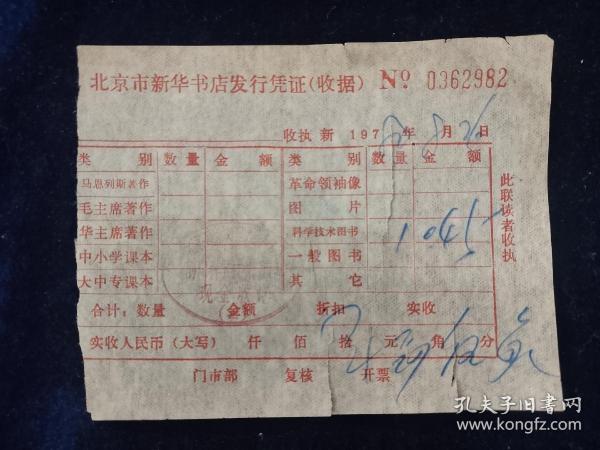 北京市新华书店发行凭证(收据) № 0362982
收执 新 197 年 8月 26日
类 别 数量 金 额 类 别 数量 金 额
马恩列斯著作 革命领袖像
毛主席著作 图 片
华主席著作 科学技术图书 1 045
中小学课本 一般图书
大中专课本 其 它
合计:数量 金额 折扣 实收
实收人民币(大写) 仟 佰 拾 元 角 分
门市部 复核 开票
此联读者收执
孔夫子旧书网
www.kongfz.com